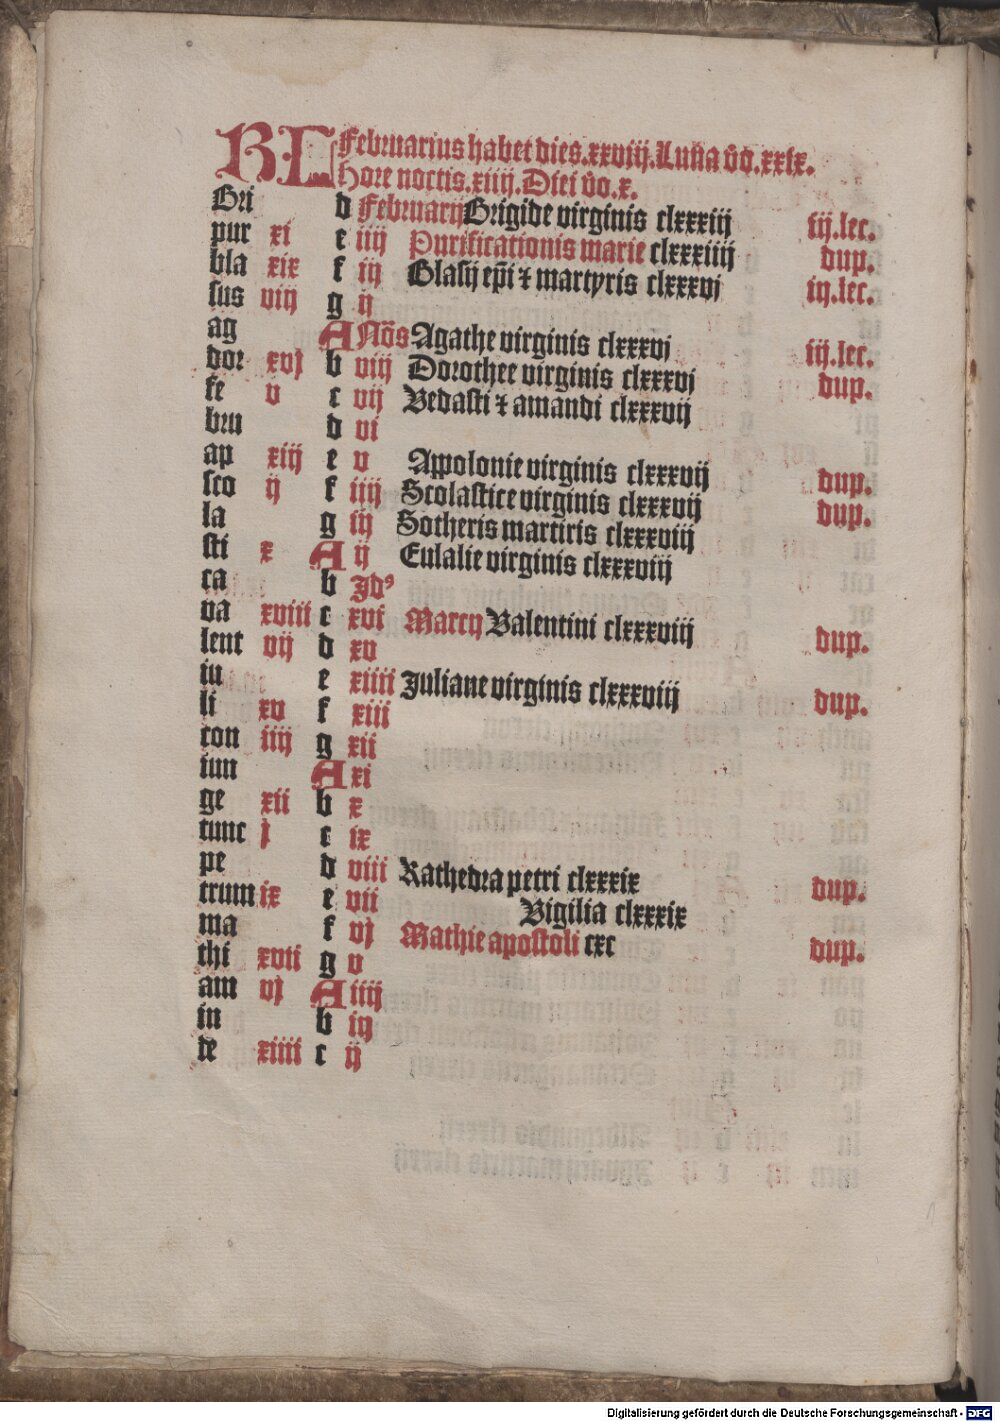 KL Februarius habet dies.xxviij.Luña v̄o.xxix.
Hore noctis.xiiij.Diei v̄o.x.
Bri d Februarij Brigide virginis clxxxiij iij.lec.
pur xi e iiij Purificationis marie clxxxiiij dup.
bla xix f iij Blasij ep̄i ⁊ martyris clxxxvj iij.lec.
sus viij g ij
ag A Nōs Agathe virginis clxxxvj iij.lec.
dor xvj b viij Dorothee virginis clxxxvj dup.
fe v c vij Vedasti ⁊ amandi clxxxvij
bru d vi
ap xiij e v Appolonie virginis clxxxvij dup.
sco ij f iiij Scolastice virginis clxxxvij dup.
la g iij Sotheris martiris clxxxviij
sti x A ij Eulalie virginis clxxxviij
ca b Jdꝰ
va xviii c xvi Marcij Valentini clxxxviij dup.
lent vij d xv
iu e xiiii Juliane virginis clxxxviij dup.
li xv f xiii
con iiij g xii
iun A xi
ge xii b x
tunc j c ix
pe d viii Kathedra petri clxxxix dup.
trum ix e vii Vigilia clxxxix
ma f vj Mathie apostoli cxc dup.
thi xvii g v
am vj A iiij
in b iij
de xiiii c ij
Digitalisierung gefördert durch die Deutsche Forschungsgemeinschaft - DFG